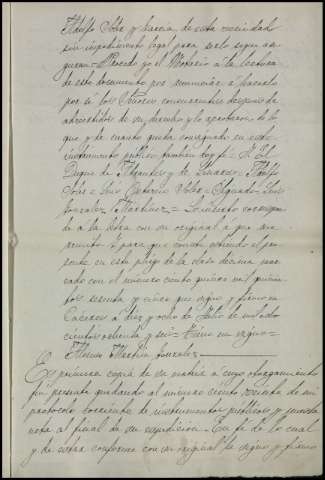 Adolfo Solar y Garcia, de esta vecindad
sin impedimento legal para serlo segun ase-
guran = Procedo yo el Notario á la lectura
de este documento por renunciar á hacerlo
por si los Señores concurrentes despues de
advertidos de su derecho y lo aprobaron de lo
que y de cuanto queda consignado en este
instrumento publico tambien doy fé = El
Duque de Abrantes y de Linares = Adolfo
Solar = Luis Octavio = Signado = Luis
Gonzalez Martinez = Lo inserto correspon-
de á la letra con su original á que me
remito. Y para que conste estiendo el pre-
sente en este pliego de la clase décima mar-
cado con el número ciento quince mil quinien-
tos setenta y cinco que signo y firmo en
Cáceres á diez y ocho de Julio de mil ocho
cientos ochenta y seis = Tiene un signo =
Gonzalez
Es primera copia de su matriz á cuyo otorgamiento
fui presente quedando al número ciento de mi
protocolo corriente de instrumentos publicos y puesta
nota al final de su expedicion. En fé de lo cual
y de estar conforme con su original la signo y firmo